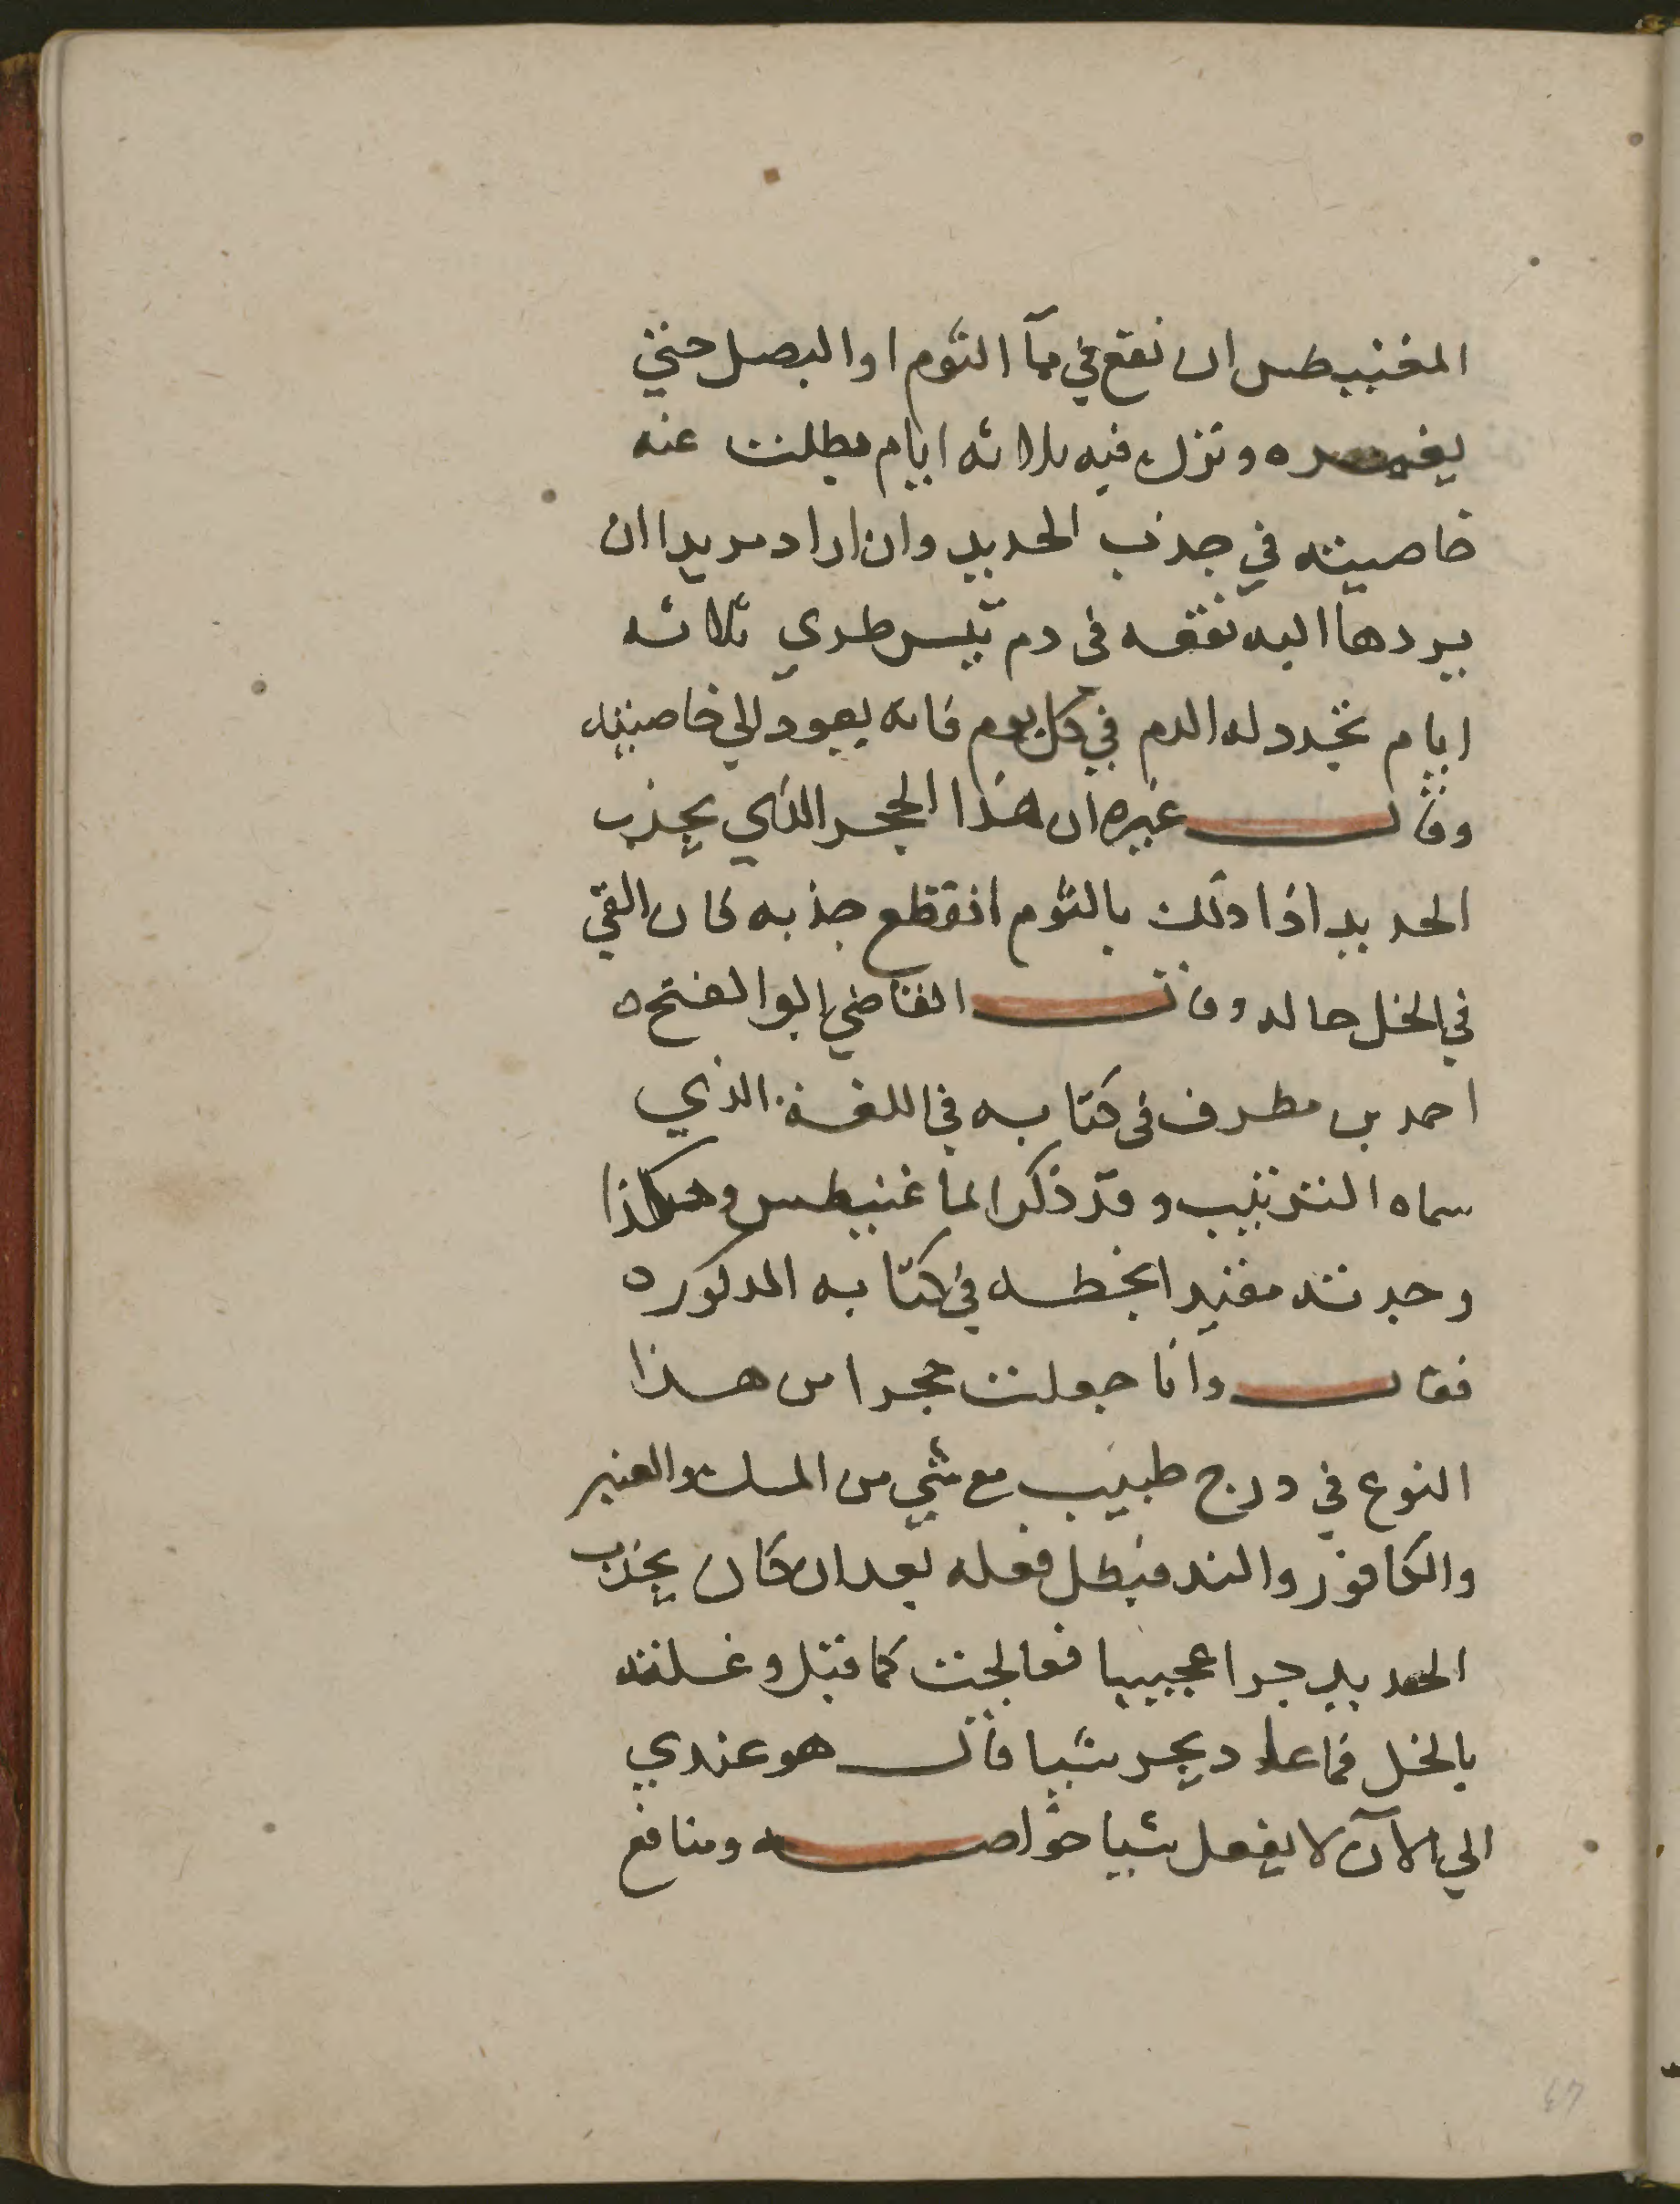 المغنيطس ان نقع في مآ الثوم او البصل حتي
يغمره وترك فيه ثلاثه ايام بطلت عنه
خاصيته في جذب الحديد وان اراد مريدا ان
يردها اليه نقعه في دم تيس طري ثلاثه
ايام تجدد له الدم في كل يوم فانه يعود الي خاصيته
وقال غيره ان هذا الحجر الذي يجذب
الحديد اذا دلك بالثوم انقطع جذبه فان القي
في الخل حاله وقال القاضي ابو الفتح ه
احمد بن مطرف في كتابه في اللغة الذي
سماه الترتيب وقد ذكر الماغنيطس وهكذا
وجدته مقيدا بخطه في كتابه المذكور ه
فقال وانا جعلت حجرا من هذا
النوع في درج طيب مع شي من المسك والعنبر
والكافور والند فبطل فعله بعد ان كان يجذب
الحديد جرا عجيبا فعالجت كما قيل وغسلته
بالخل فما عاد يجر شيا قال هو عندي
الي الآن لا يفعل شيا خواصه ومنافع